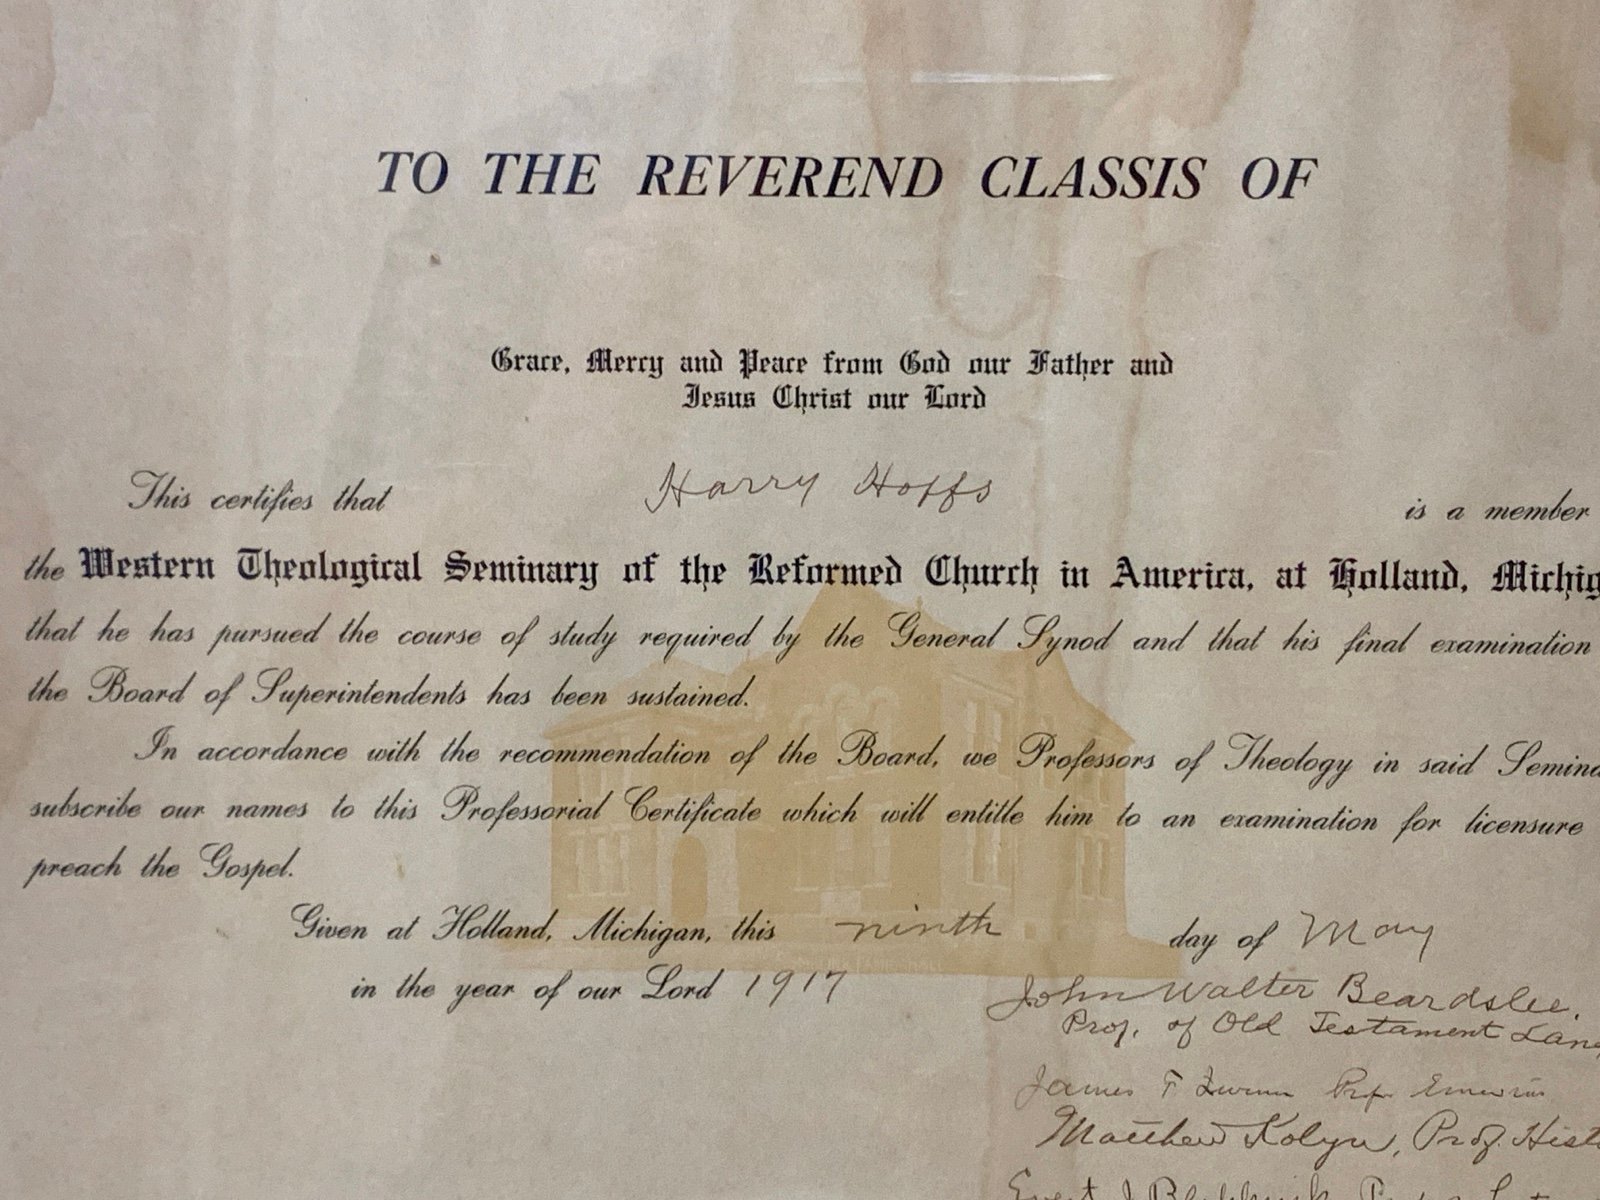 TO THE REVEREND CLASSIS OF
Grace, Mercy and Peace from God our Father and
Jesus Christ our Lord
This certifies that Harry Hoffs is a member
the Western Theological Seminary of the Reformed Church in America, at Holland, Michig
that he has pursued the course of study required by the General Synod and that his final examination
the Board of Superintendents has been sustained.
In accordance with the recommendation of the Board, we Professors of Theology in said Semina
subscribe our names to this Professorial Certificate which will entitle him to an examination for licensure
preach the Gospel.
Given at Holland, Michigan, this ninth day of May
in the year of our Lord 1917
John Walter Beardslee.
Prof. of Old Testament Lang
James F Zwemer Prof Emeritus
Matthew Kolyn, Prof. Hist
Evert J Blekkink Prof